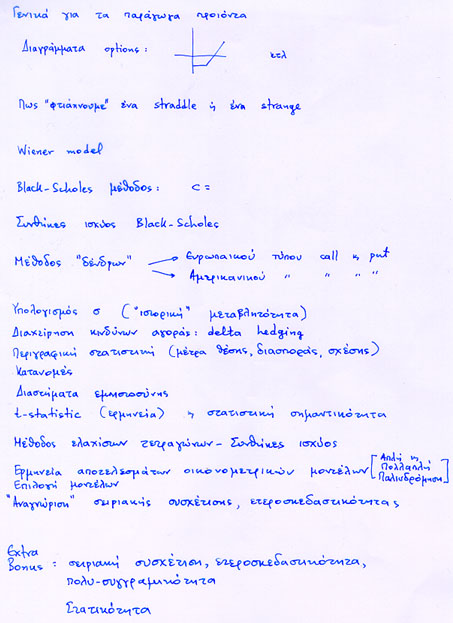 Γενικά για τα παράγωγα προϊόντα
Διαγράμματα options: κτλ
Πως "φτιάχνουμε" ένα straddle ή ένα strange
Wiener model
Black-Scholes μέθοδος: C =
Συνθήκες ισχύος Black-Scholes
Μέθοδος "δένδρων" Ευρωπαικού τύπου call & put
Αμερικανικού " " " "
Υπολογισμός σ ("ιστορική" μεταβλητότητα)
Διαχείρηση κινδύνων αγοράς: delta hedging
Περιγραφική στατιστική (μέτρα θέσης, διασποράς, σχέσης)
Κατανομές
Διαστήματα εμπιστοσύνης
t-statistic (ερμηνεία) ή στατιστική σημαντικότητα
Μέθοδος ελαχίστων τετραγώνων - Συνθήκες ισχύος
Ερμηνεία αποτελεσμάτων οικονομετρικών μοντέλων [Απλή & Πολλαπλή Παλινδρόμηση]
Επιλογή μοντέλων
"Αναγνώριση" σειριακής συσχέτισης, ετεροσκεδαστικότητας
Extra
Bonus: σειριακή συσχέτιση, ετεροσκεδαστικότητα,
πολυ-συγγραμικότητα
Στατικότητα